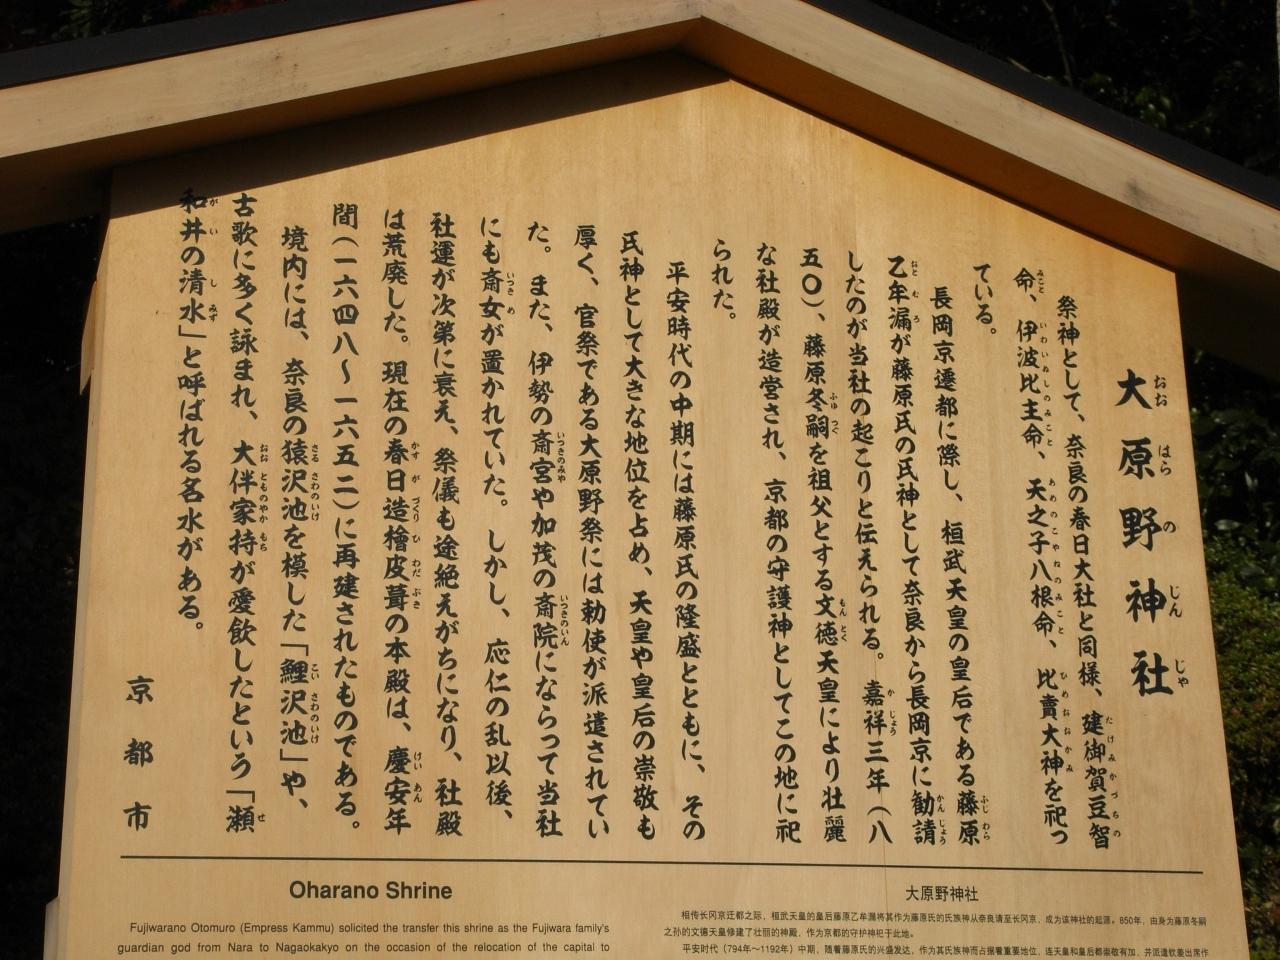 大原野神社
祭神として、奈良の春日大社と同様、建御賀豆智
命、伊波比主命、天之子八根命、比賣大神を祀っ
ている。
長岡京遷都に際し、桓武天皇の皇后である藤原
乙牟漏が藤原氏の氏神として奈良から長岡京に勧請
したのが当社の起こりと伝えられる。嘉祥三年（八
五〇）、藤原冬嗣を祖父とする文徳天皇により壮麗
な社殿が造営され、京都の守護神としてこの地に祀
られた。
平安時代の中期には藤原氏の隆盛とともに、その
氏神として大きな地位を占め、天皇や皇后の崇敬も
厚く、官祭である大原野祭には勅使が派遣されてい
た。また、伊勢の斎宮や加茂の斎院にならって当社
にも斎女が置かれていた。しかし、応仁の乱以後、
社運が次第に衰え、祭儀も途絶えがちになり、社殿
は荒廃した。現在の春日造檜皮葺の本殿は、慶安年
間（一六四八〜一六五二）に再建されたものである。
境内には、奈良の猿沢池を模した「鯉沢池」や、
古歌に多く詠まれ、大伴家持が愛飲したという「瀬
和井の清水」と呼ばれる名水がある。
京都市
Oharano Shrine
Fujiwarano Otomuro (Empress Kammu) solicited the transfer this shrine as the Fujiwara family's
guardian god from Nara to Nagaokakyo on the occasion of the relocation of the capital to
大原野神社
相传长冈京迁都之际，桓武天皇的皇后藤原乙牟漏将其作为藤原氏的氏族神从奈良请至长冈京，成为该神社的起源。850年，由身为藤原冬嗣
之孙的文德天皇修建了壮丽的神殿，作为京都的守护神祀于此地。
平安时代（794年～1192年）中期，随着藤原氏的兴盛发达，作为其氏族神而占据着重要地位，连天皇和皇后都崇敬有加，并派遣钦差出席作